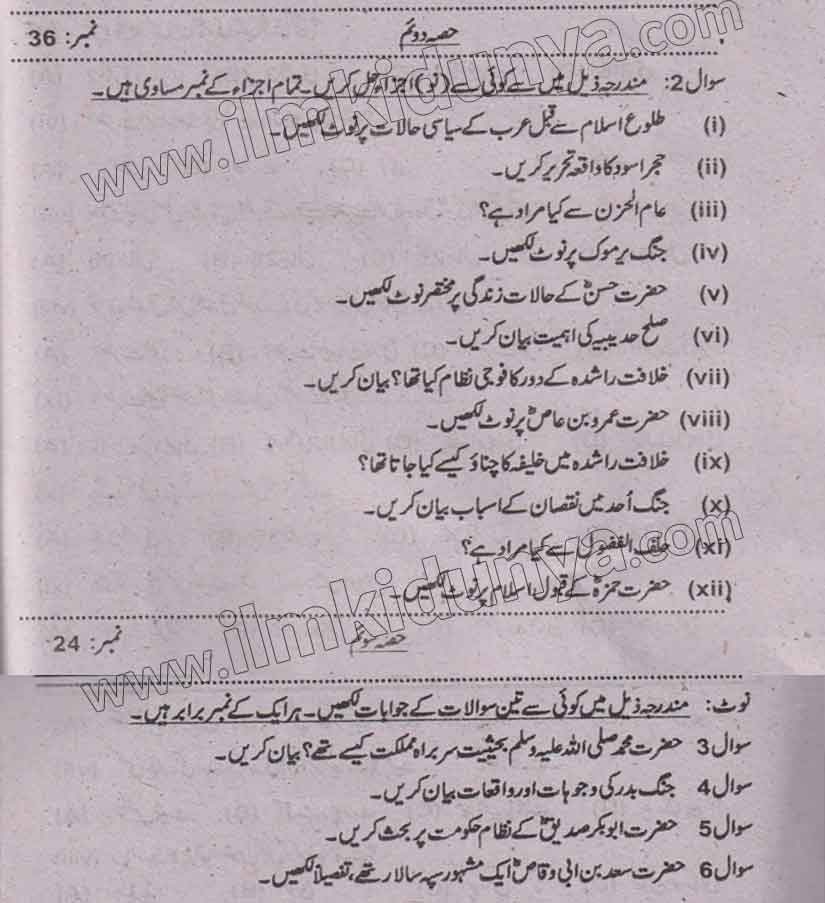 حصہ دوئم نمبر: 36
سوال 2: مندرجہ ذیل میں سے کوئی سے (نو) اجزاء حل کریں۔ تمام اجزاء کے نمبر مساوی ہیں۔
(i) طلوع اسلام سے قبل عرب کے سیاسی حالات پر نوٹ لکھیں۔
(ii) حجر اسود کا واقعہ تحریر کریں۔
(iii) عام الحزن سے کیا مراد ہے؟
(iv) جنگ یرموک پر نوٹ لکھیں۔
(v) حضرت حسنؓ کے حالات زندگی پر مختصر نوٹ لکھیں۔
(vi) صلح حدیبیہ کی اہمیت بیان کریں۔
(vii) خلافت راشدہ کے دور کا فوجی نظام کیا تھا؟ بیان کریں۔
(viii) حضرت عمرو بن عاصؓ پر نوٹ لکھیں۔
(ix) خلافت راشدہ میں خلیفہ کا چناؤ کیسے کیا جاتا تھا؟
(x) جنگ اُحد میں نقصان کے اسباب بیان کریں۔
(xi) حلف الفضول سے کیا مراد ہے؟
(xii) حضرت حمزہؓ کے قبول اسلام پر نوٹ لکھیں۔
حصہ سوئم نمبر: 24
نوٹ: مندرجہ ذیل میں کوئی سے تین سوالات کے جوابات لکھیں۔ ہر ایک کے نمبر برابر ہیں۔
سوال 3 حضرت محمد صلی اللہ علیہ وسلم بحیثیت سربراہ مملکت کیسے تھے؟ بیان کریں۔
سوال 4 جنگ بدر کی وجوہات اور واقعات بیان کریں۔
سوال 5 حضرت ابوبکر صدیقؓ کے نظام حکومت پر بحث کریں۔
سوال 6 حضرت سعد بن ابی وقاصؓ ایک مشہور سپہ سالار تھے، تفصیلاً لکھیں۔
www.ilmkidunya.com
www.ilmkidunya.com
www.ilmkidunya.com